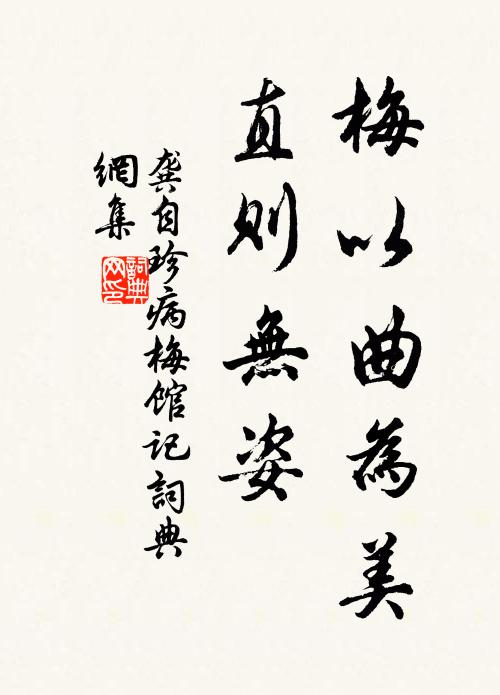 梅以曲為美
直则無姿
龔自珍病梅馆记詞典
網集
詞典
网印